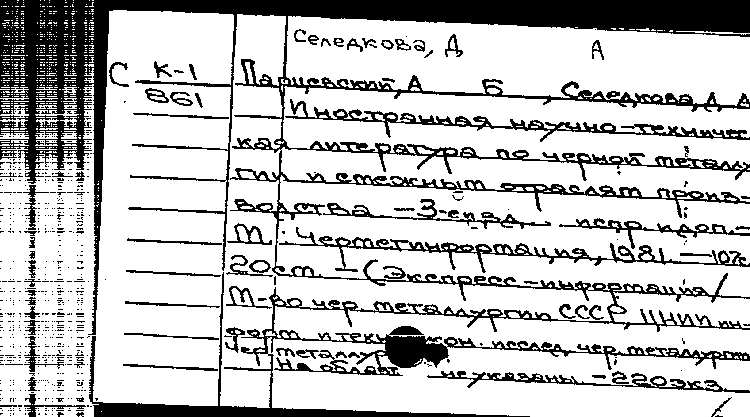 Селедкова, Д А
С К-1 Парцевский, А Б , Селедкова, Д А
861 Иностранная научно-техничес
кая литература по черной металлу
гии и смежным отраслям произ-
водства — 3-е изд. испр. и доп. —
М.: Черметинформация, 1981. — 107с
20см. — (Экспресс-информация/
М-во чер металлургии СССР, ЦНИИ ин
форм. и техн кон. исслед. чер. металлурги
чер металлур
На облож не указаны. — 220экз.